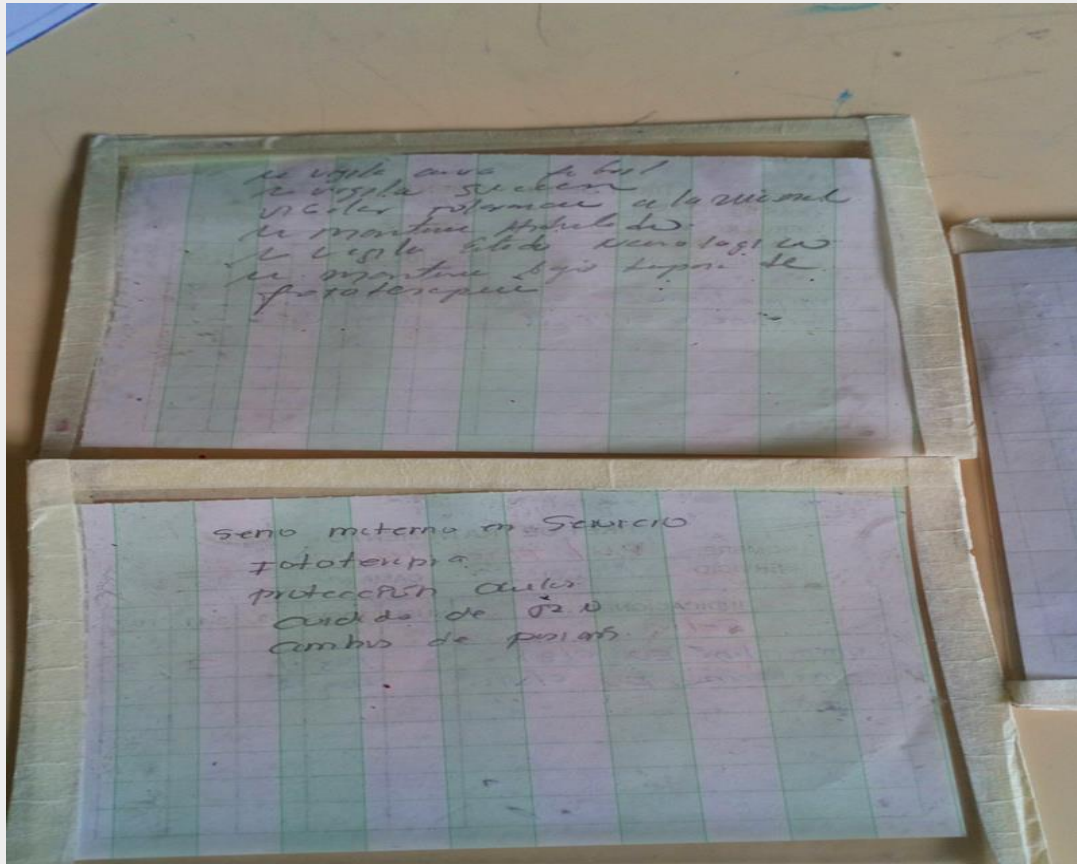 se vigila curva febril
se vigila succion
vigilar tolerancia a la via oral
se mantiene hidratado
se vigila estado neurologico
se mantiene bajo lampara de
fototerapia
seno materno en Servicio
Fototerapia
protección ocular
cuidado de
cambio de